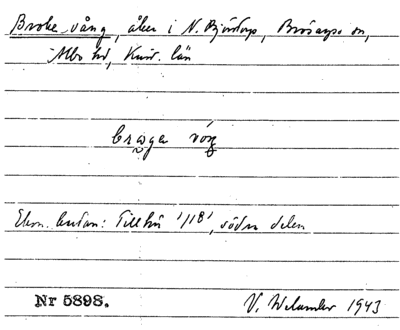 Broke-vång, åker i N. Björstorp, Brösarps sn,
Albo hd, Krist. län
Ekon. kartan: Tillhör 1/18¹, södra delen
Nr 5898.
V. Welander 1943